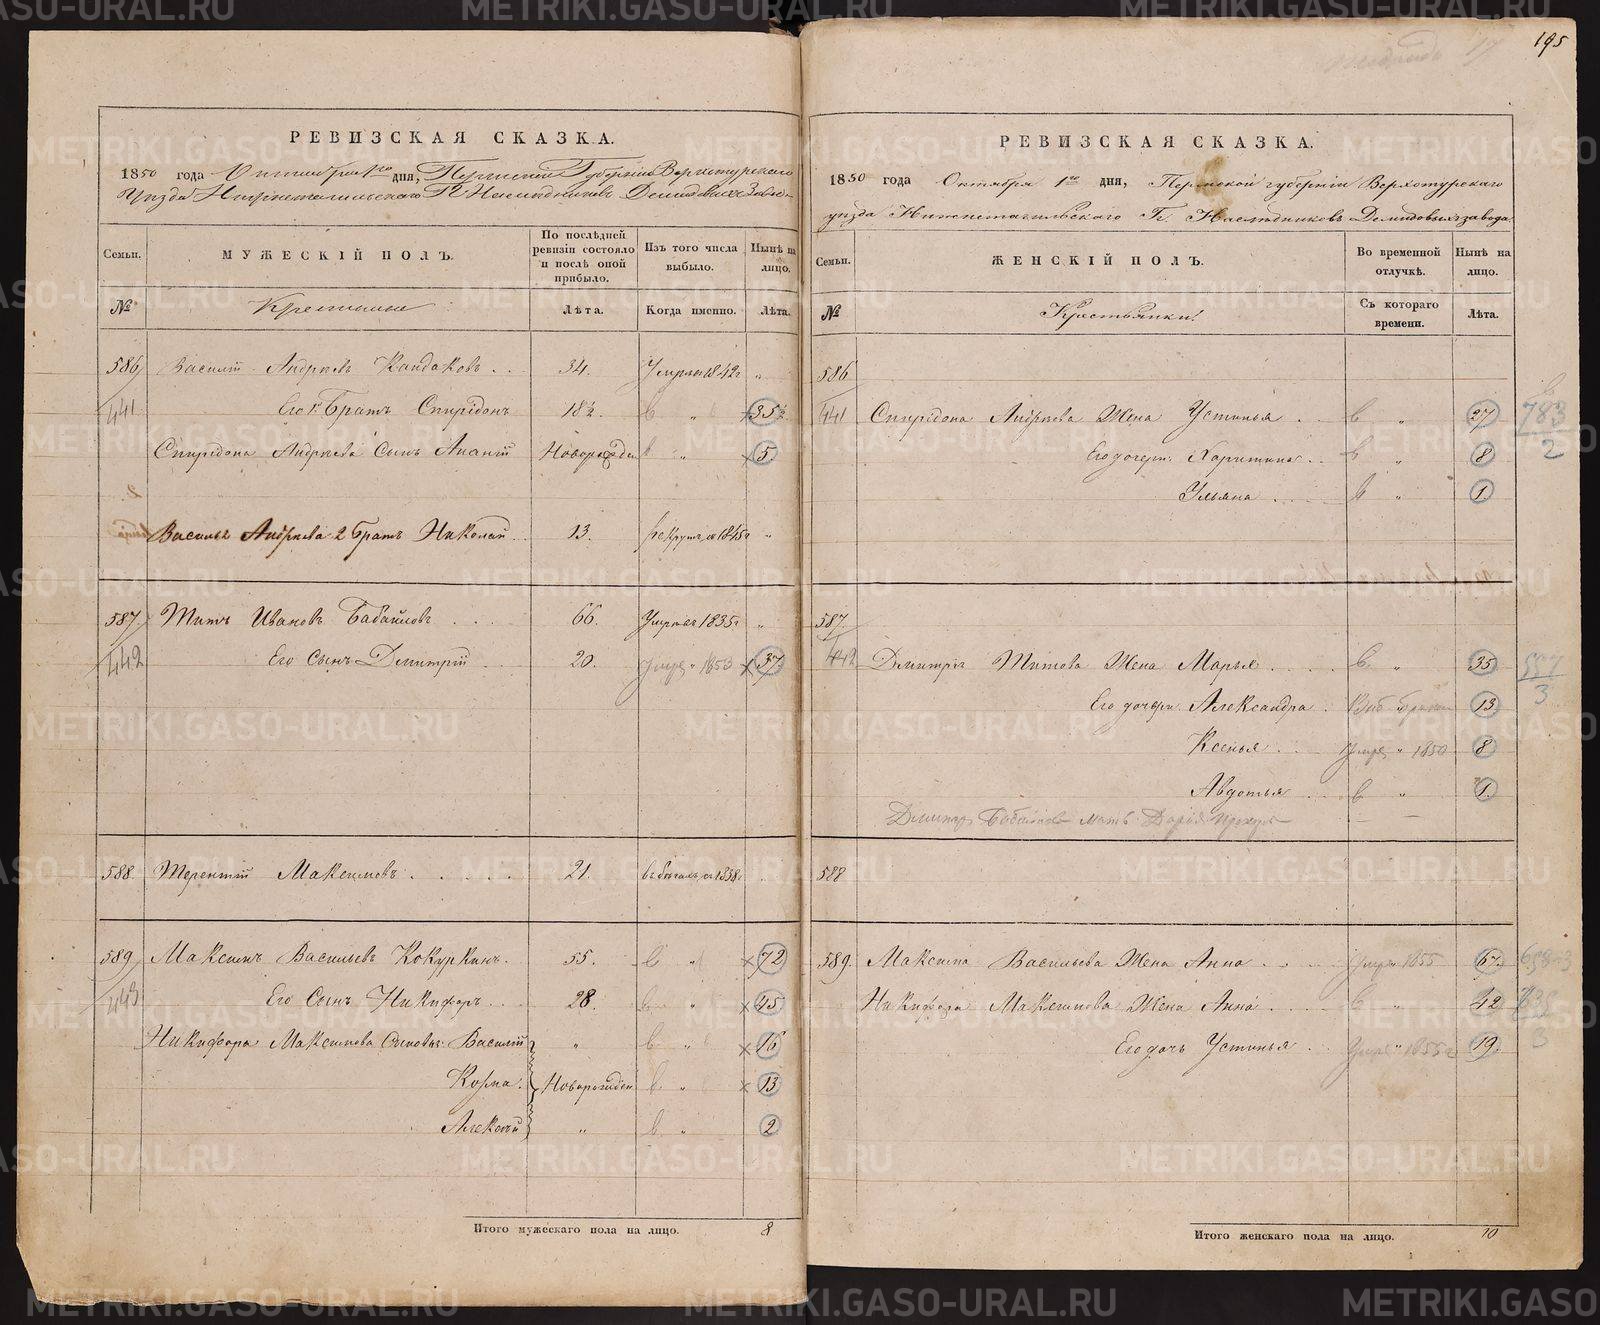 195
РЕВИЗСКАЯ СКАЗКА.
1850 года Октября 1го дня, Пермской Губернiи Верхотурскаго
Уѣзда Нижнетагильскаго Гг. Наслѣдниковъ Демидовыхъ Заво-
Семьи.
МУЖЕСКIЙ ПОЛЪ.
По послѣдней ревизiи состояло и послѣ оной прибыло.
Изъ того числа выбыло.
Нынѣ на лицо.
№
Крестьяне
Лѣта.
Когда именно.
Лѣта.
586 Василiй Андреевъ Кандаковъ 34. Умеръ въ 1842 г. „
441 Его 1. Братъ Спиридонъ 18½. „ 35½
Спиридона Андреева Сынъ Ананiй Новорожден „ 5
2.
Василья Андреева 2 Братъ Николай 13. Рекрутъ въ 1845 г. „
587. Титъ Ивановъ Бабайловъ 66. Умеръ въ 1835 г. „
442 Его Сынъ Дмитрiй 20. Умер „ 1853 37
588. Терентiй Максимовъ 21. въ бѣгахъ съ 1838 г.
589. Максимъ Васильевъ Кокуркинъ. 55. „ 72
443 Его Сынъ Никифоръ 28. „ 45
Никифора Максимова Сыновья: Василiй „ „ 16
Козма. Новорожден „ 13
Алексѣй „ „ 2
Итого мужескаго пола на лицо. 8
РЕВИЗСКАЯ СКАЗКА.
1850 года Октября 1го дня, Пермской губернiи Верхотурскаго
уѣзда Нижнетагильскаго Гг. Наслѣдниковъ Демидовыхъ завода.
Семьи.
ЖЕНСКIЙ ПОЛЪ.
Во временной отлучкѣ.
Нынѣ на лицо.
№
Крестьянки
Съ котораго времени.
Лѣта.
586
441 Спиридона Андреева Жена Устинья „ 27 783
2
Его дочери: Харитина „ 8
Ульяна „ 1
587.
442 Дмитрiя Титова Жена Марья „ 35 557
3
Его дочери. Александра 13
Ксенья Умер „ 1850 8
Авдотья „ 1.
Дмитрiя Бабайлова мать Дарiя
588
589. Максима Васильева Жена Анна Умер 1855 67.
Никифора Максимова Жена Анна „ 42
3
Его дочь Устинья Умер „ 1855 19.
Итого женскаго пола на лицо. 10
METRIKI.GASO-URAL.RU